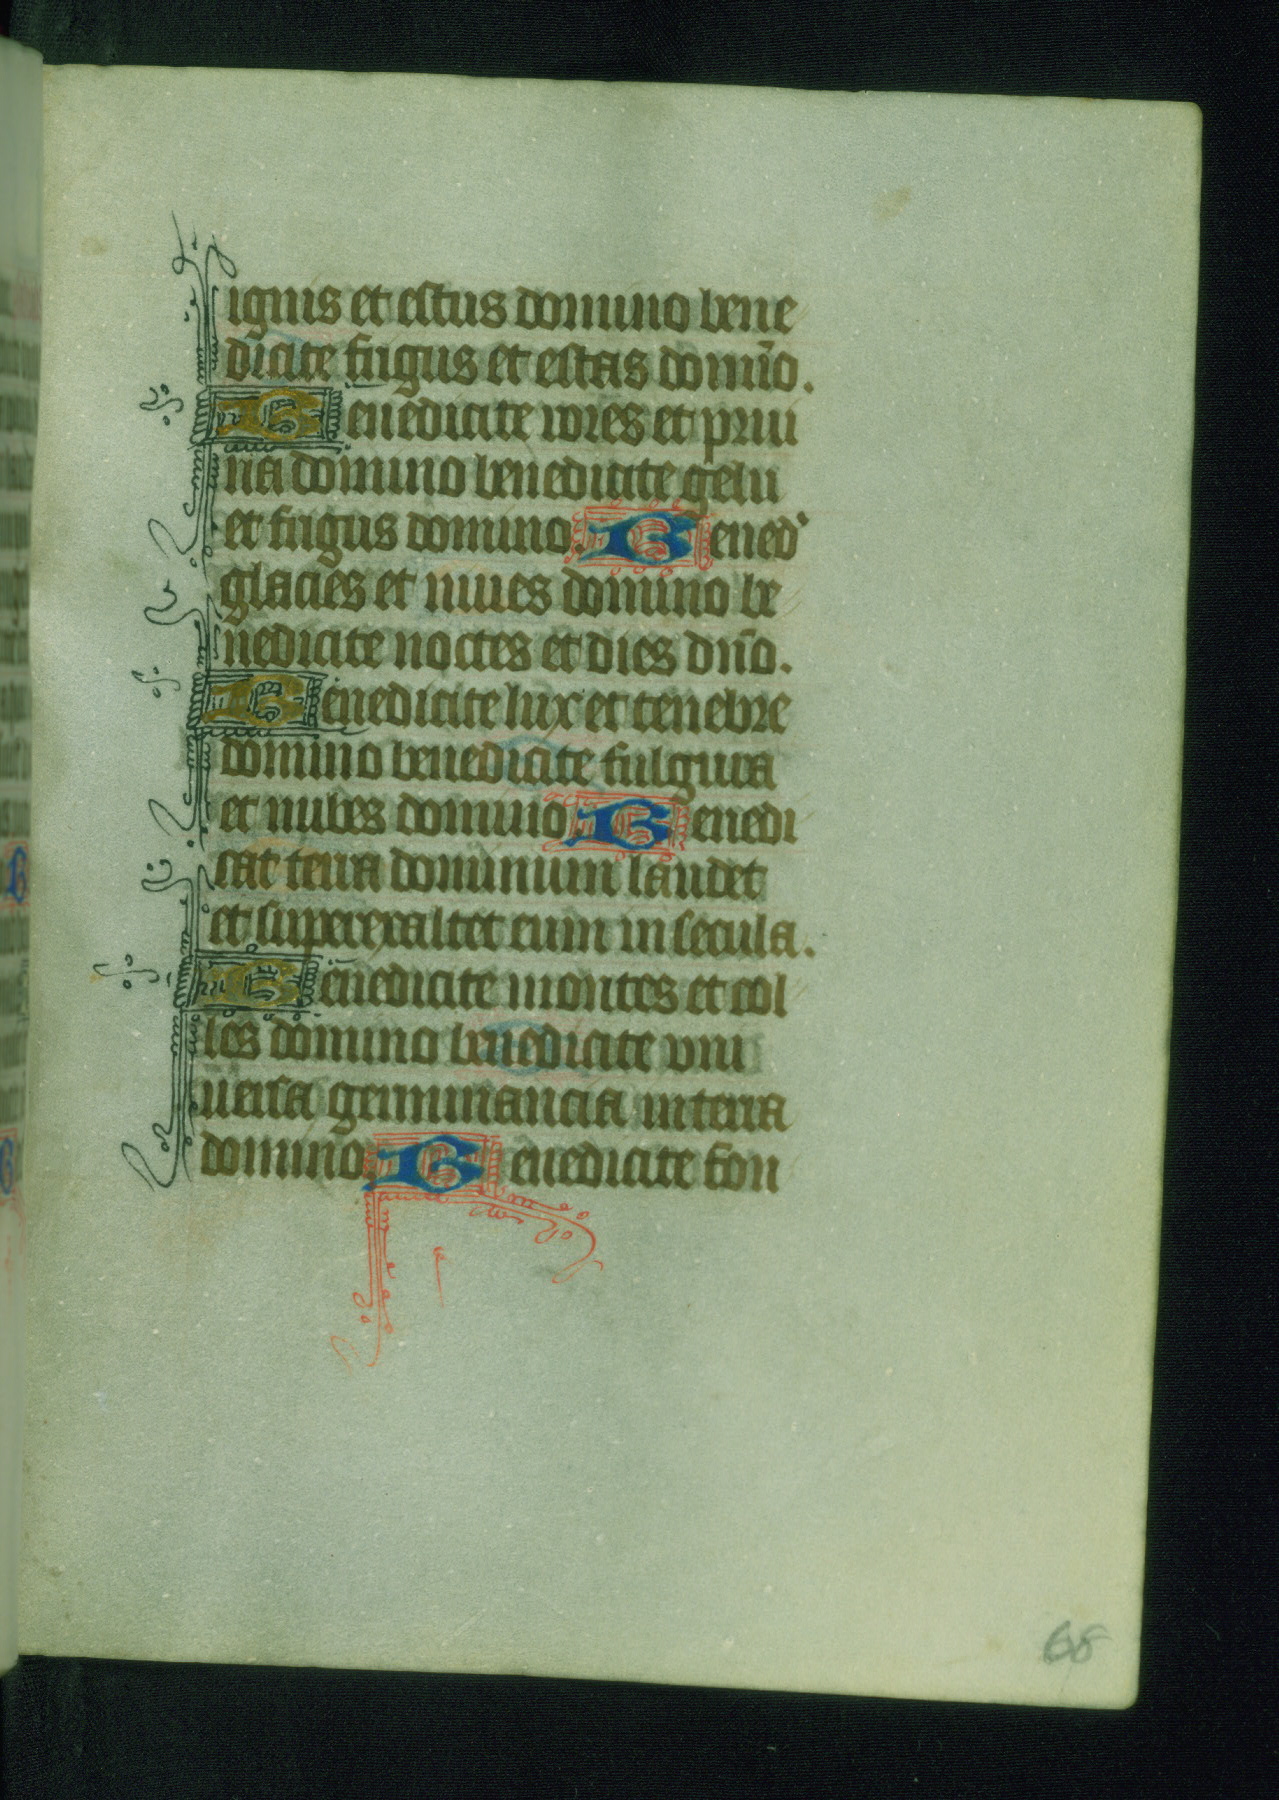 ignis et estus domino bene
dicite frigus et estas domīo.
Benedicite rores et prui
na domino benedicite gelu
et frigus domino. Bened'
glacies et niues domino be
nedicite noctes et dies dn̄o.
Benedicite lux et tenebre
domino benedicite fulgura
et nubes domino. Benedi
cat terra dominum laudet
et superexaltet eum in secula.
Benedicite montes et col
les domino benedicite vni
uersa germinancia in terra
domino. Benedicite fon
68